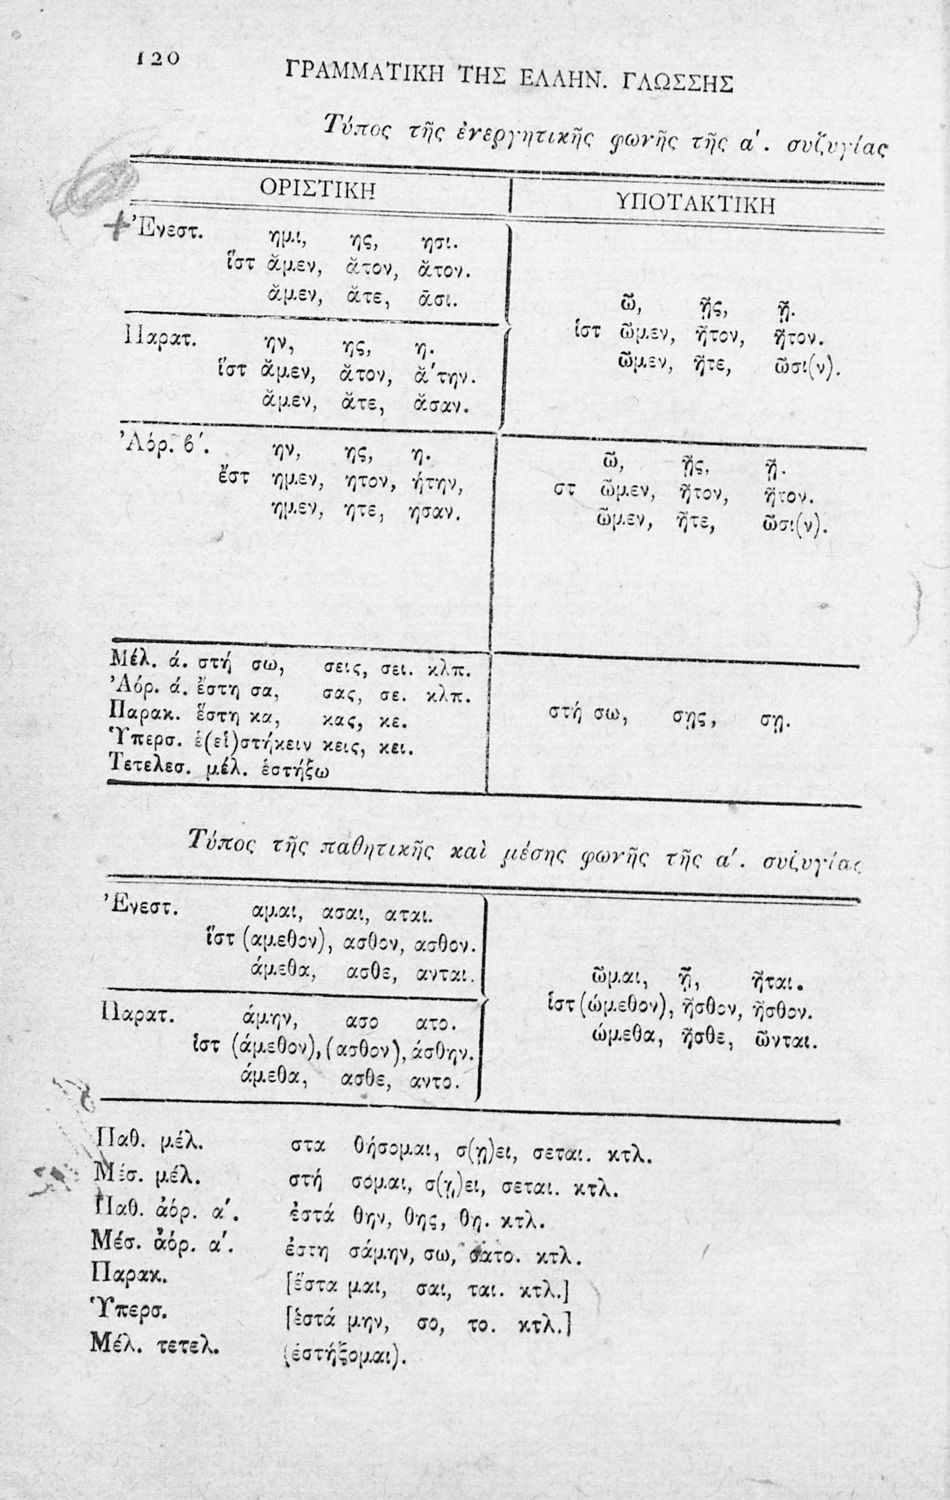 120
ΓΡΑΜΜΑΤΙΚΗ ΤΗΣ ΕΛΛΗΝ. ΓΛΩΣΣΗΣ
Τύπος τῆς ἐνεργητικῆς φωνῆς τῆς α΄. συζυγίας
ΟΡΙΣΤΙΚΗ ΥΠΟΤΑΚΤΙΚΗ
Ἐνεστ. ημι, ης, ησι.
ἵστ ᾰμεν, ᾰτον, ᾰτον.
ᾰμεν, ᾰτε, ᾶσι.
ῶ, ῇς, ῇ.
ἱστ ῶμεν, ῆτον, ῆτον.
ῶμεν, ῆτε, ῶσι(ν).
Παρατ. ην, ης, η.
ἵστ ᾰμεν, ᾰτον, ᾰ́την.
ᾰμεν, ᾰτε, ᾰσαν.
Ἀόρ. β΄. ην, ης, η.
ἔστ ημεν, ητον, ήτην,
ημεν, ητε, ησαν.
ῶ, ῇς, ῇ.
στ ῶμεν, ῆτον, ῆτον.
ῶμεν, ῆτε, ῶσι(ν).
Μέλ. ά. στή σω, σεις, σει. κλπ.
Ἀόρ. ά. ἔστη σα, σας, σε. κλπ.
Παρακ. ἕστη κα, κας, κε.
Ὑπερσ. ἑ(εἱ)στήκειν κεις, κει.
Τετελεσ. μέλ. ἑστήξω
στή σω, σῃς, σῃ.
Τύπος τῆς παθητικῆς καὶ μέσης φωνῆς τῆς α΄. συζυγίας
Ἐνεστ. αμαι, ασαι, αται.
ἵστ (αμεθον), ασθον, ασθον.
άμεθα, ασθε, ανται.
ῶμαι, ῇ, ῆται.
ἱστ (ώμεθον), ῆσθον, ῆσθον.
ώμεθα, ῆσθε, ῶνται.
Παρατ. άμην, ασο ατο.
ἱστ (άμεθον), (ασθον), άσθην.
άμεθα, ασθε, αντο.
Παθ. μέλ. στα θήσομαι, σ(ῃ)ει, σεται. κτλ.
Μέσ. μέλ. στή σομαι, σ(ῃ)ει, σεται. κτλ.
Παθ. ἀόρ. α΄. ἐστά θην, θης, θη. κτλ.
Μέσ. ἀόρ. α΄. ἐστη σάμην, σω, σατο. κτλ.
Παρακ. [ἕστα μαι, σαι, ται. κτλ.]
Ὑπερσ. [ἑστά μην, σο, το. κτλ.]
Μέλ. τετελ. (ἑστήξομαι).